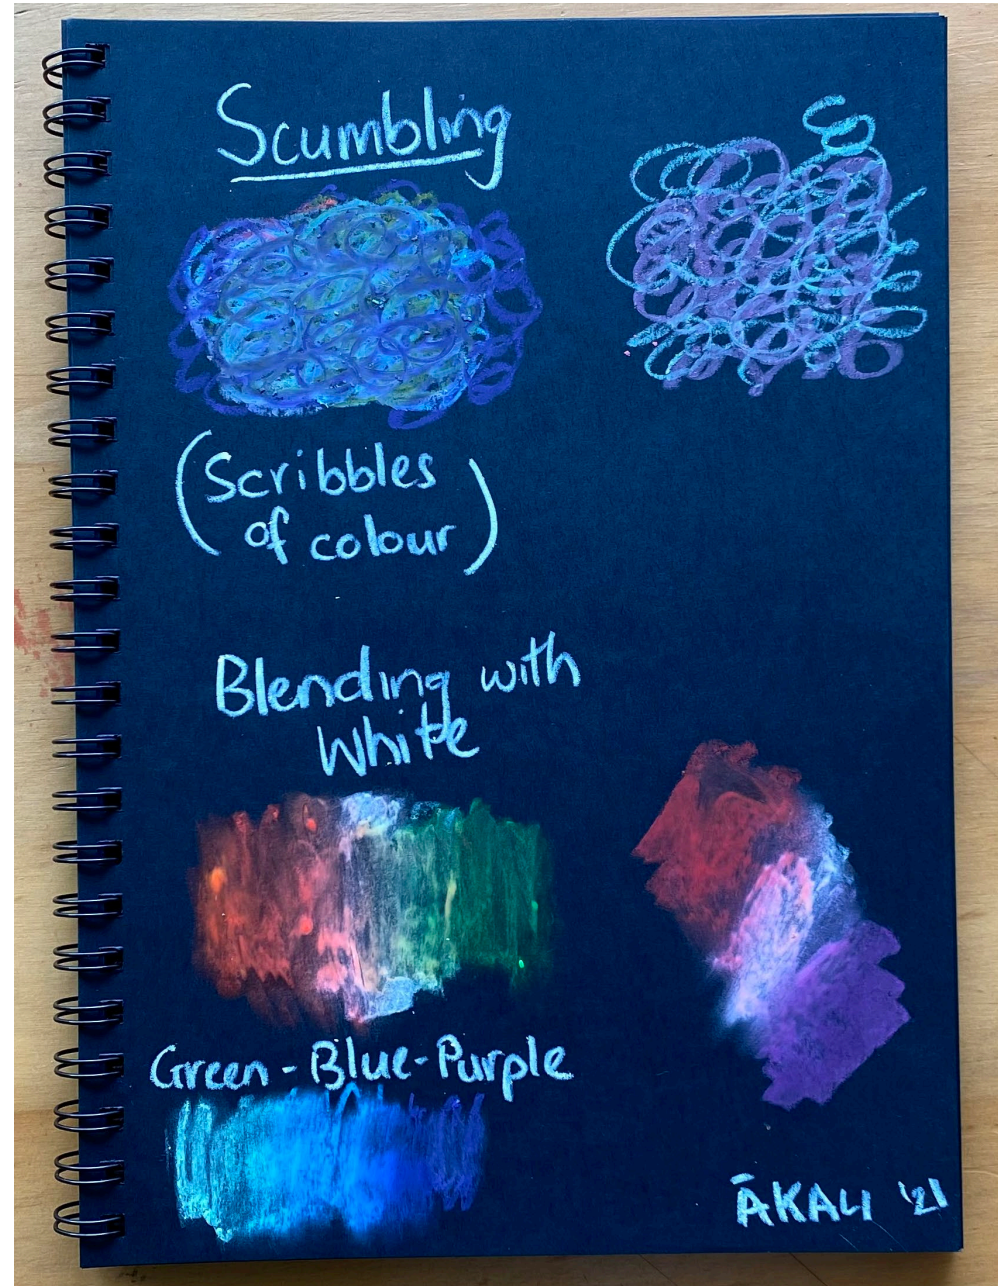 Scumbling
(Scribbles
of colour)
Blending with
White
Green - Blue - Purple
ĀKALI '21